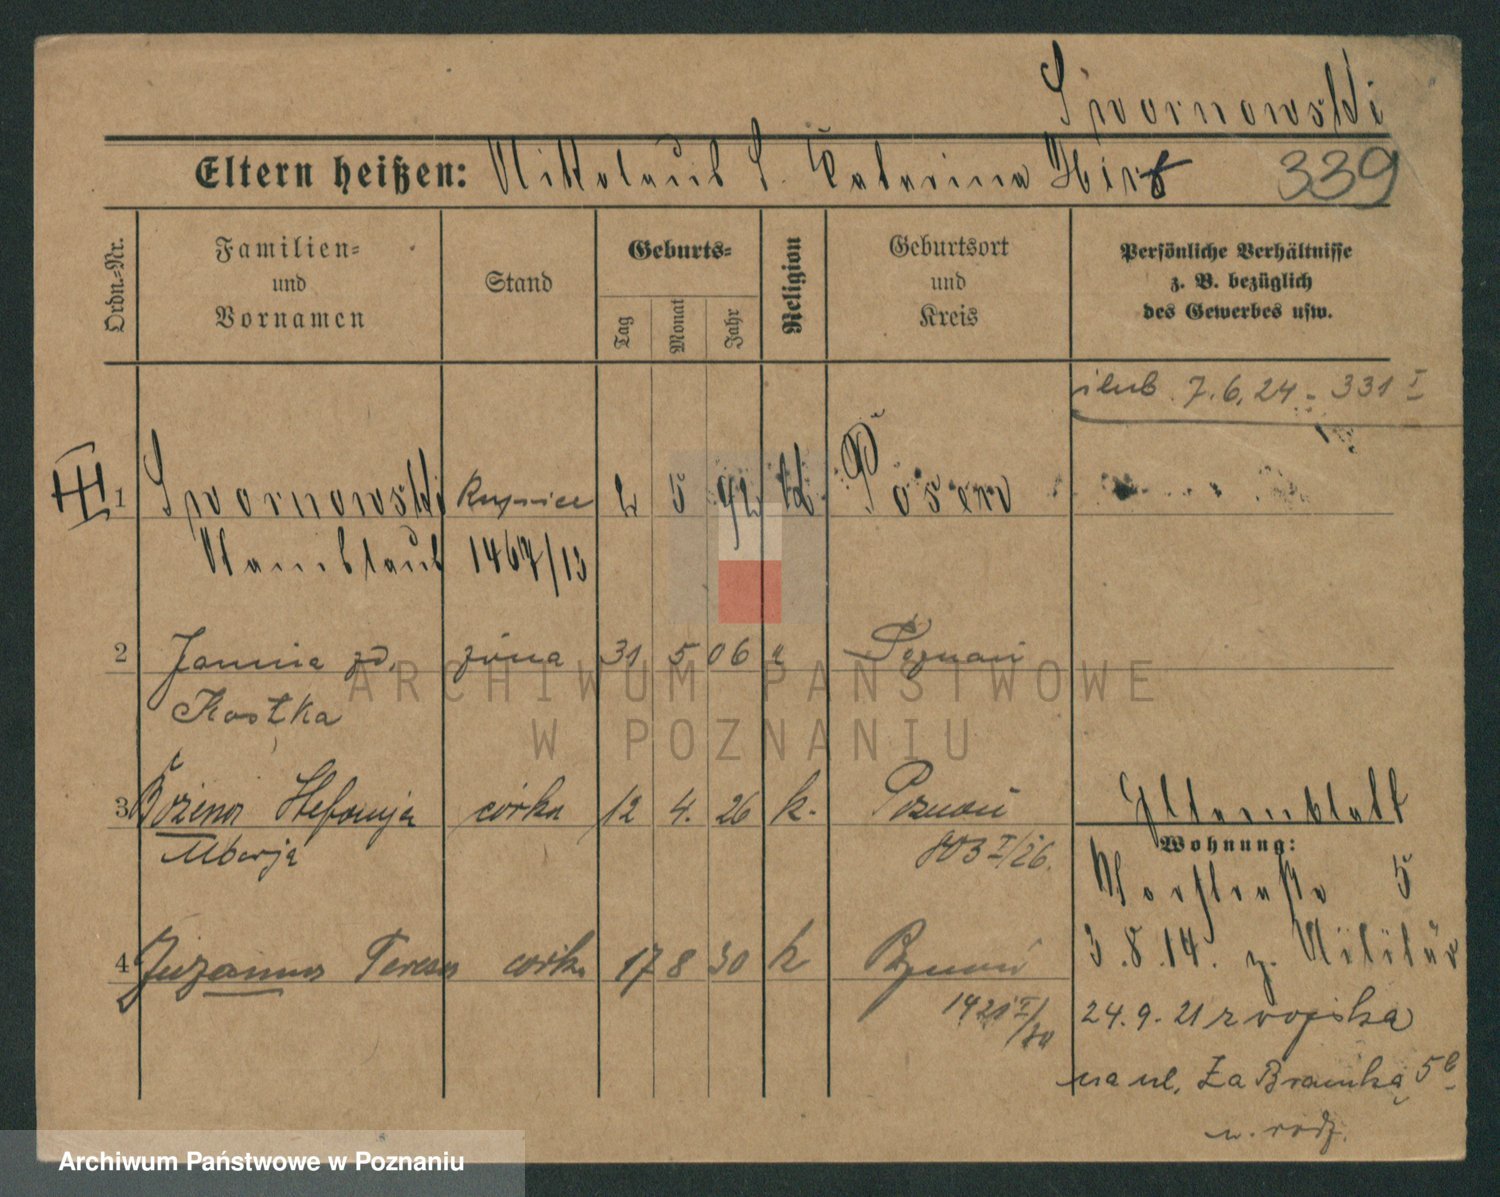 Swornowski
Eltern heißen: Nikolaus S. Katarina
339
Ordn.-Nr.
Familien-
und
Vornamen
Stand
Geburts-
Tag
Monat
Jahr
Religion
Geburtsort
und
Kreis
Persönliche Verhältnisse
z. B. bezüglich
des Gewerbes usw.
ślub. 7.6.24 - 331 I
III
1 Swornowski 2 5 92 Posen
Stanislaus 1467/13
2 Janina zd. żona 31 5 06 Poznań
Kostka
3 Bożena Stefanja córka 12 4. 26 k. Poznań
Marja 803 I/26.
Elternblatt
Wohnung:
5
4 Zuzanna Teresa córka 17 8 30 k Poznań
3.8.14. z. Militär
1421 I/30
24.9.21 z wojska
na ul. Za Bramką 5
u. rodz.
ARCHIWUM PAŃSTWOWE
W POZNANIU
Archiwum Państwowe w Poznaniu